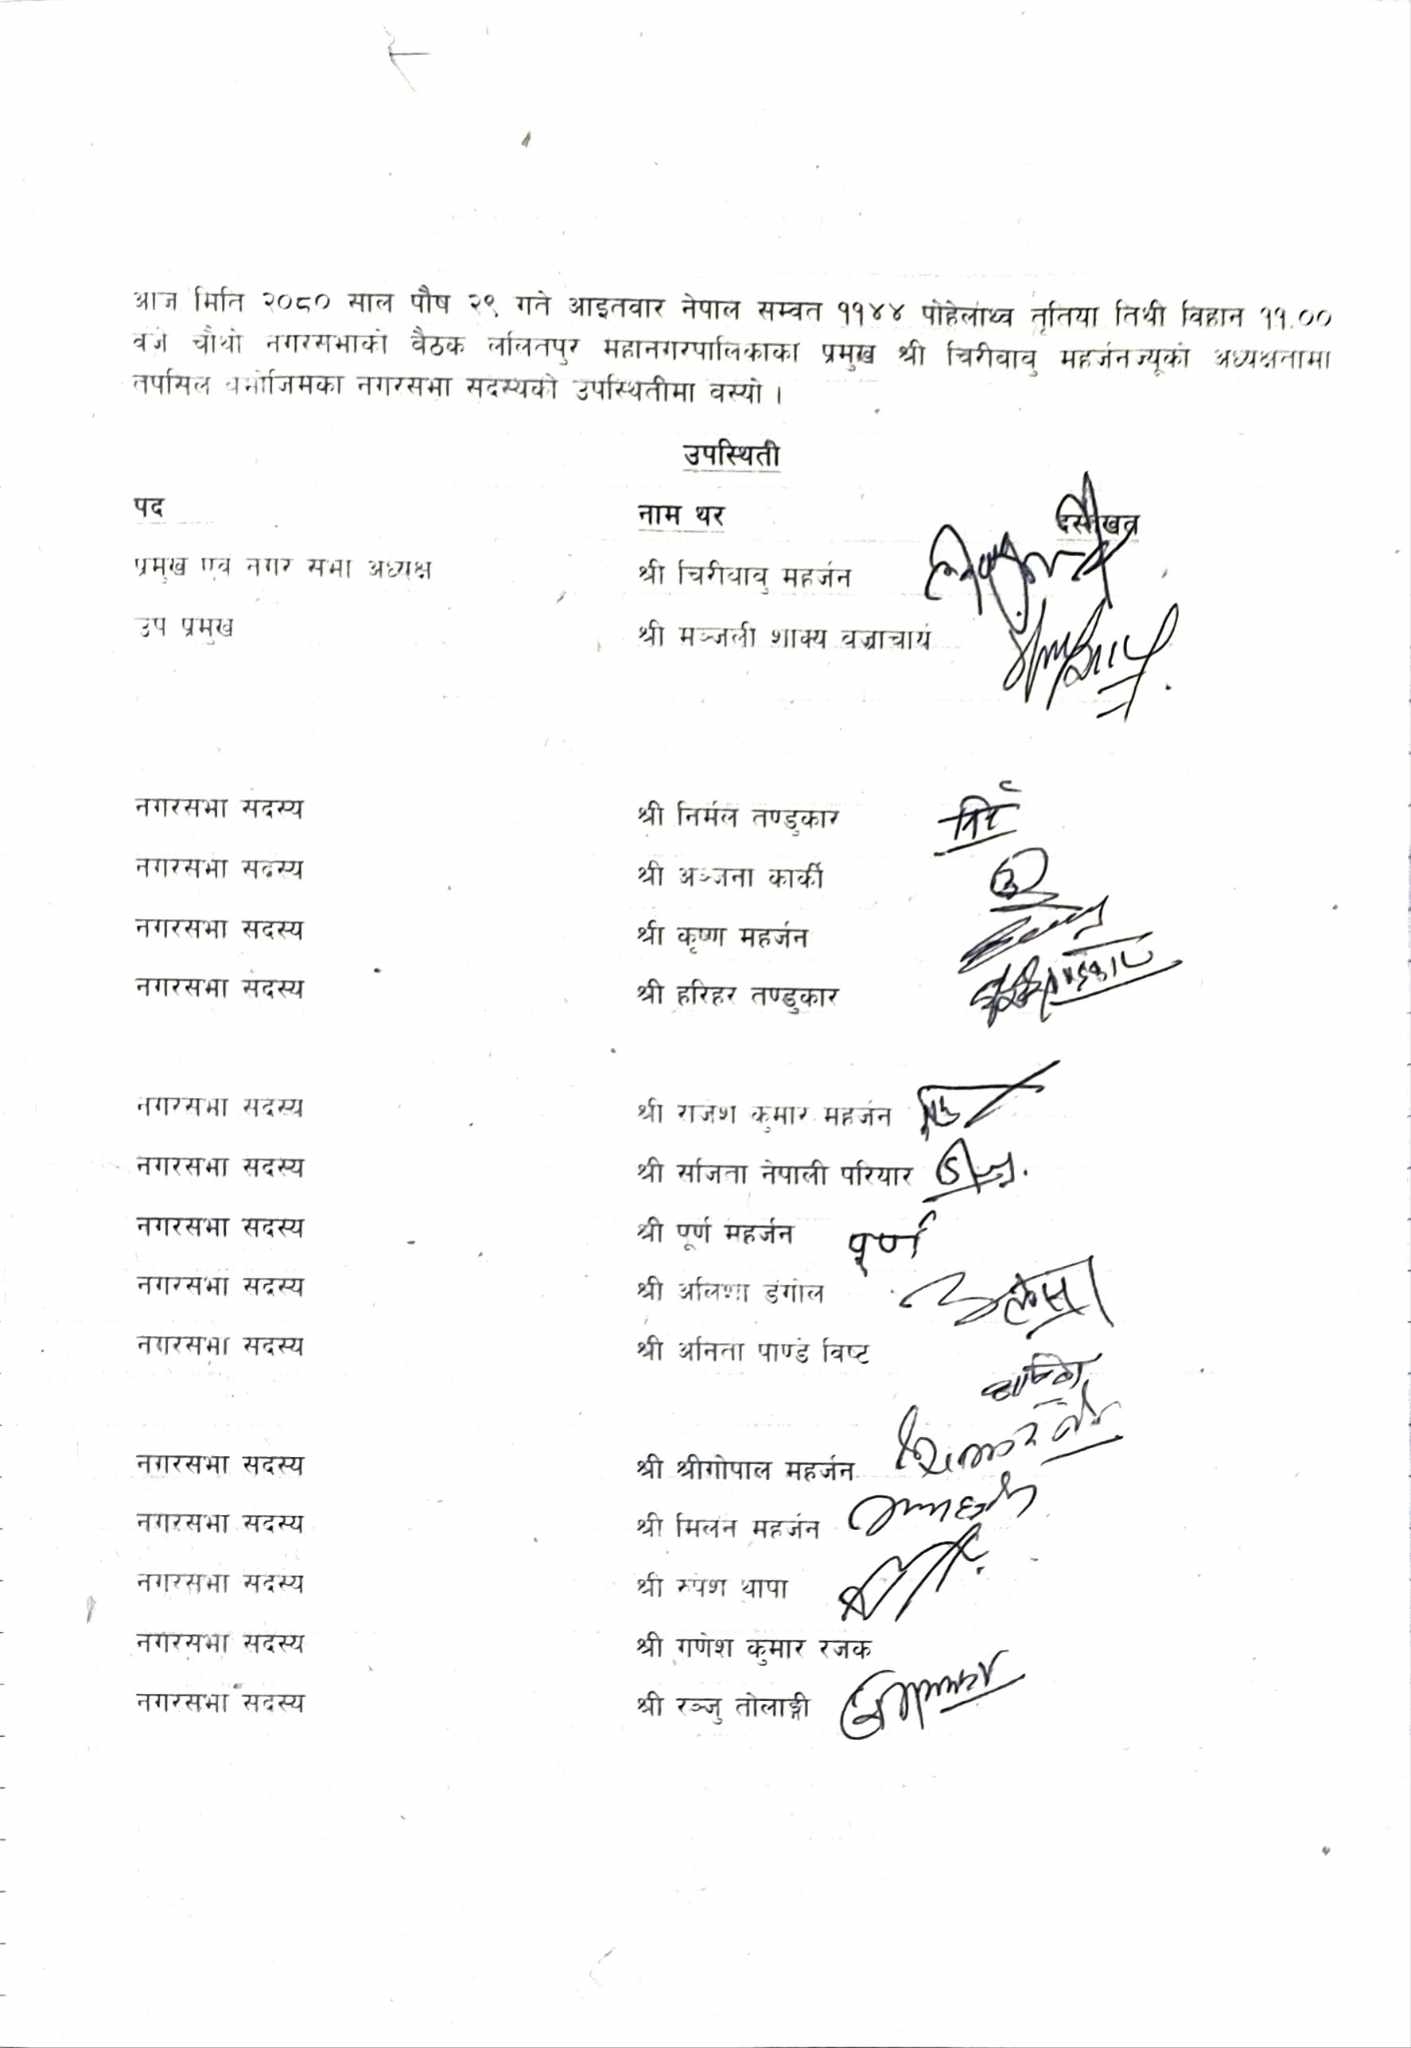 आज मिति २०८० साल पौष २९ गते आइतवार नेपाल सम्वत ११४४ पोहेलाथ्व तृतिया तिथी विहान ११.००
वजे चौथो नगरसभाको बैठक ललितपुर महानगरपालिकाका प्रमुख श्री चिरीवावु महर्जनज्यूको अध्यक्षतामा
तपसिल बमोजिमका नगरसभा सदस्यको उपस्थितीमा वस्यो ।
उपस्थिती
पद नाम थर दस्तखत
प्रमुख एवं नगर सभा अध्यक्ष श्री चिरीवावु महर्जन
उप प्रमुख श्री मञ्जली शाक्य वज्राचार्य
नगरसभा सदस्य श्री निर्मल तण्डुकार
नगरसभा सदस्य श्री अञ्जना कार्की
नगरसभा सदस्य श्री कृष्ण महर्जन
नगरसभा सदस्य श्री हरिहर तण्डुकार
नगरसभा सदस्य श्री राजेश कुमार महर्जन
नगरसभा सदस्य श्री सजिता नेपाली परियार
नगरसभा सदस्य श्री पूर्ण महर्जन पूर्ण
नगरसभा सदस्य श्री अलिशा डंगोल
नगरसभा सदस्य श्री अनिता पाण्डे विष्ट
नगरसभा सदस्य श्री श्रीगोपाल महर्जन
नगरसभा सदस्य श्री मिलन महर्जन
नगरसभा सदस्य श्री रुपेश थापा
नगरसभा सदस्य श्री गणेश कुमार रजक
नगरसभा सदस्य श्री रञ्जु तोलाङ्गी